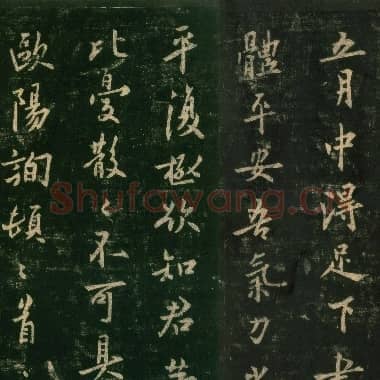 五月中得足下書
體平安吾氣力
平復極欲知君
比憂散〻不可具
歐陽詢頓〻首
Shufawang.C